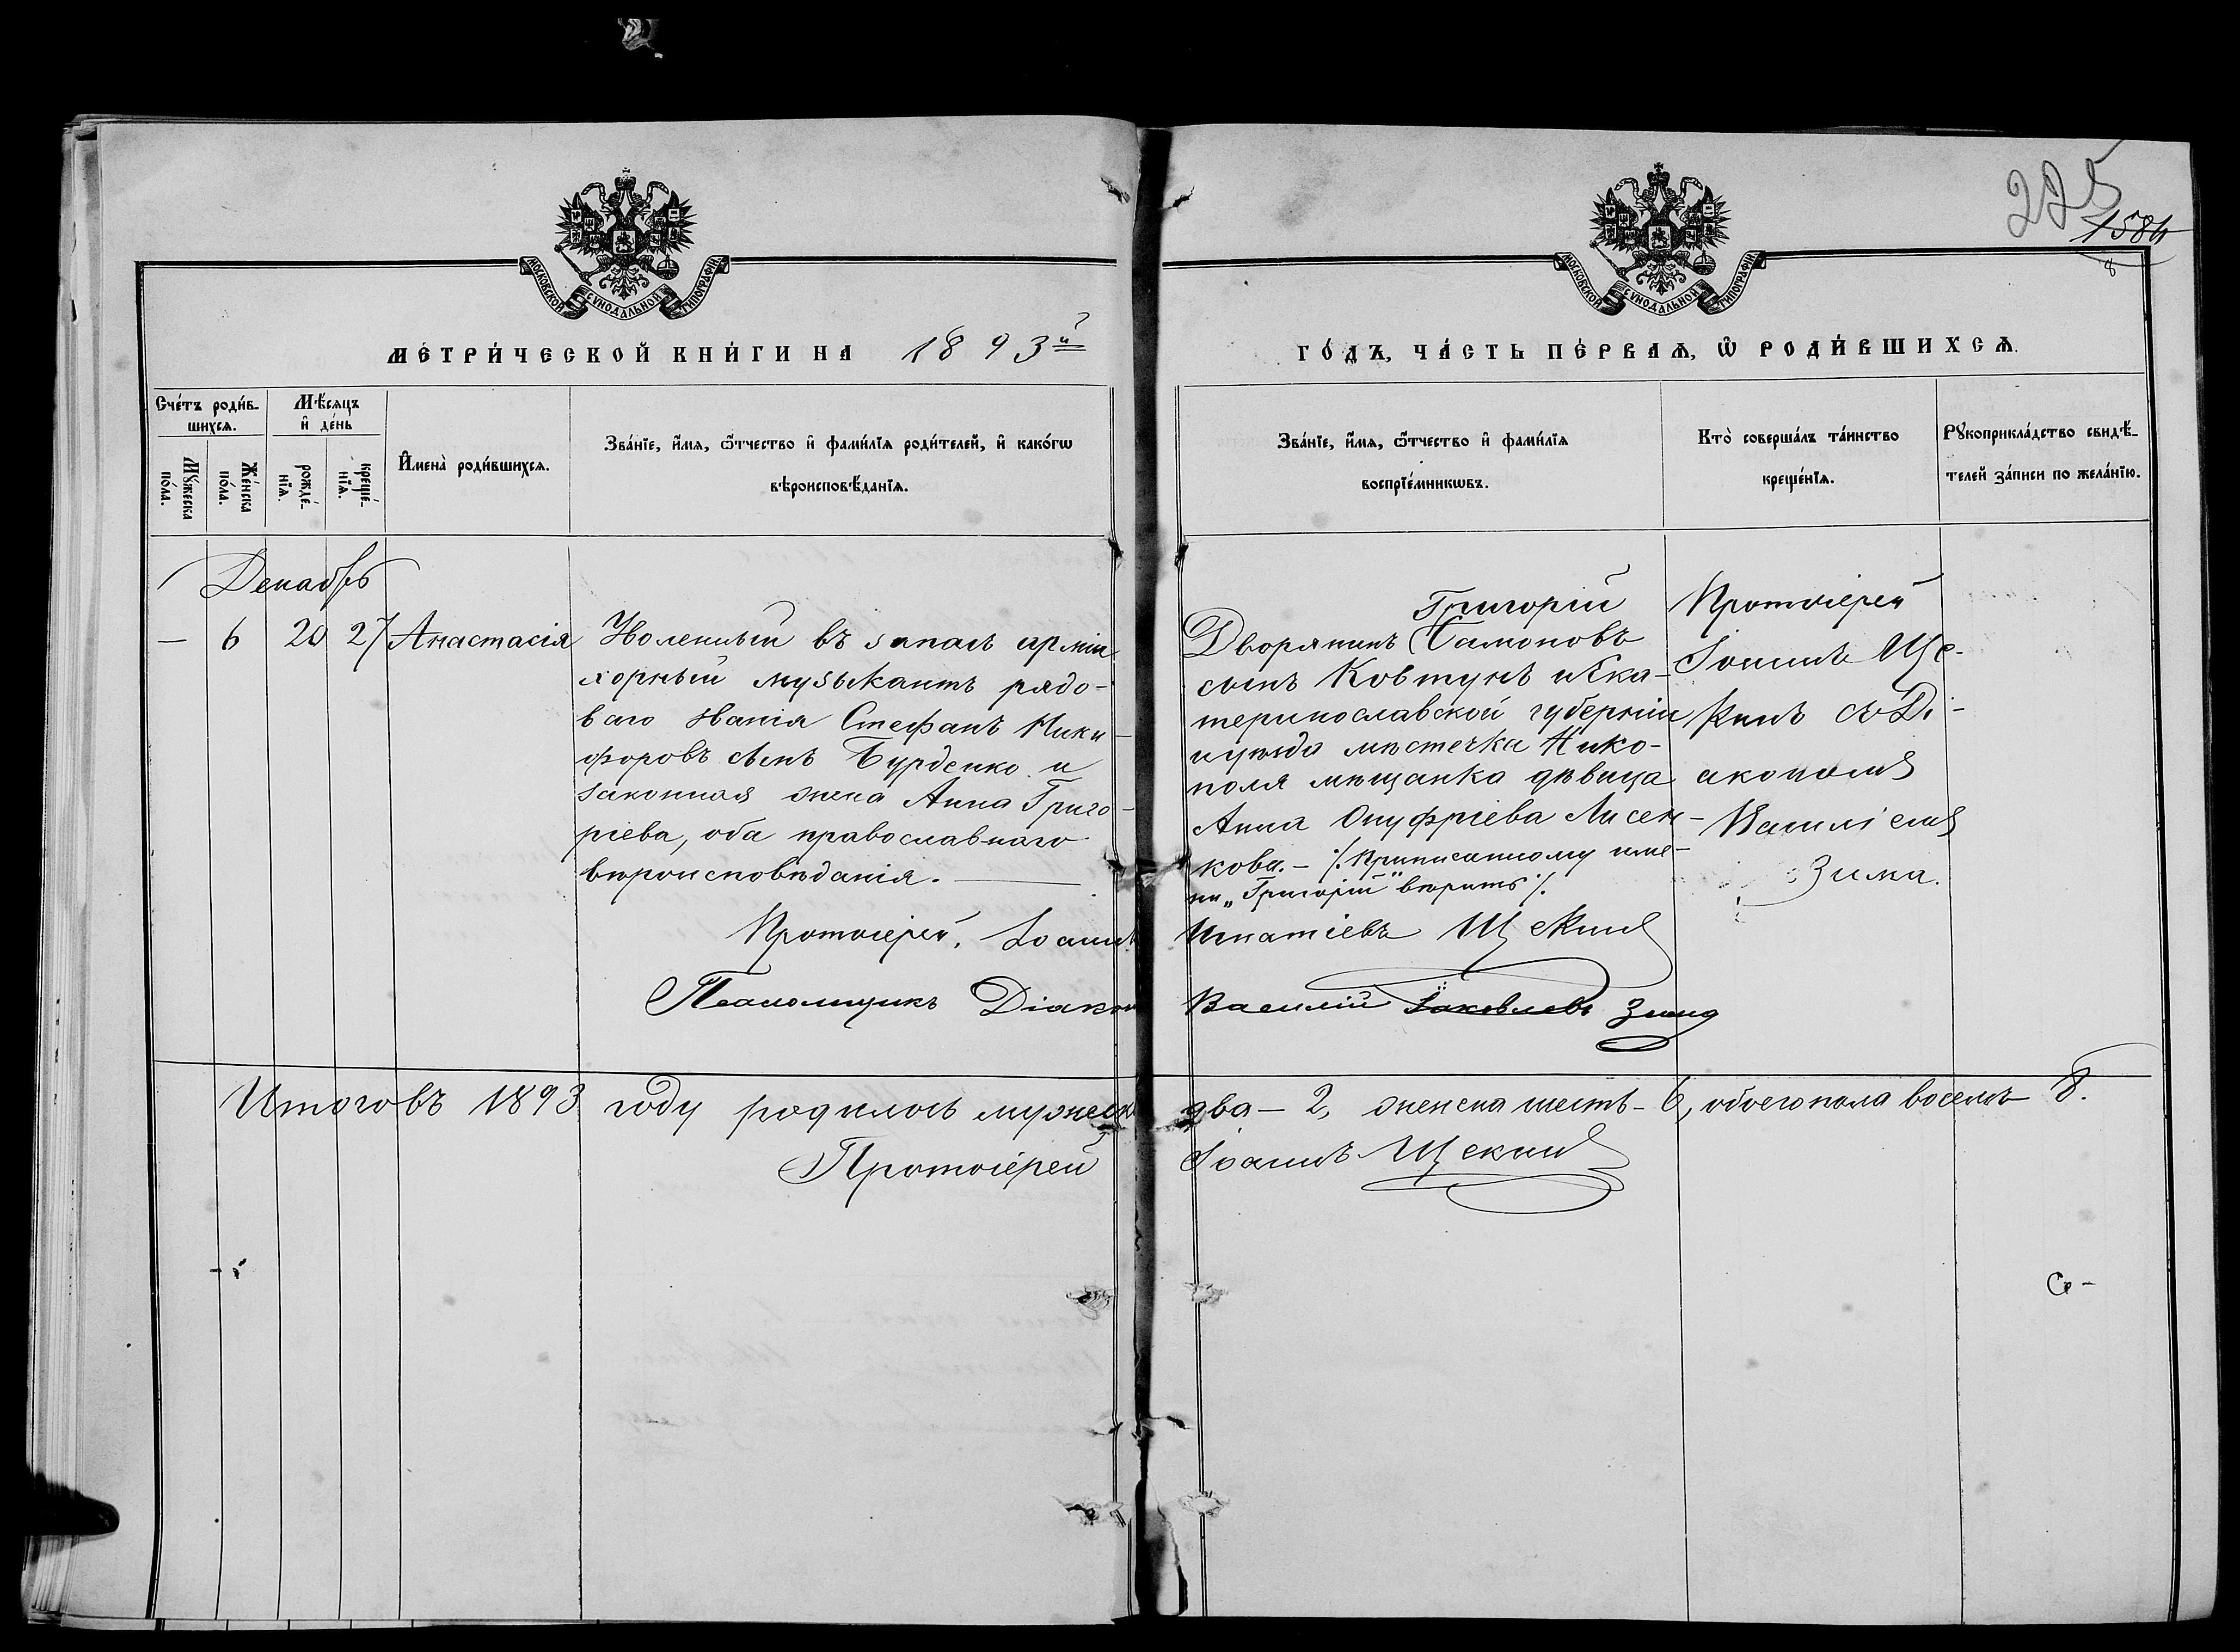 225
1584
8
МОСКОВСКОЙ СѴНОДАЛЬНОЙ ТИПОГРАФІИ
МОСКОВСКОЙ СѴНОДАЛЬНОЙ ТИПОГРАФІИ
МЕТРИ́ЧЕСКОЙ КНИ́ГИ НА 1893й
ГО́ДЪ, ЧА́СТЬ ПЕ́РВАѦ, Ѡ РОДИ́ВШИХСѦ.
Сче́тъ роди́в-
шихсѧ.
Му́жеска
по́ла.
Же́нска
по́ла.
Мѣ́сѧцъ
и де́нь
рожде́-
нїѧ.
креще́-
нїѧ.
Имена̀ роди́вшихсѧ.
Зва́нїе, и́мѧ, ѻ́тчество и фами́лїѧ роди́телей, и како́гѡ
вѣроисповѣ́данїѧ.
Зва́нїе, и́мѧ, ѻ́тчество и фами́лїѧ
воспрїе́мникѡвъ.
Кто̀ соверша́лъ та́инство
креще́нїѧ.
Рꙋкоприкла́дство свидѣ́-
телей за́писи по жела́нїю.
Декабрь
— 6 20 27 Анастасія
Уволенный въ запасъ арміи
хорный музыкантъ рядо-
ваго званія Стефанъ Ники-
форовъ сынъ Бурденко и
законная жена Анна Григо-
ріева, оба православнаго
вѣроисповѣданія.
Григорій
Дворянинъ Самоновъ
сынъ Ковтунъ и Ека-
теринославской губерніи
и уѣзда мѣстечка Нико-
поля мѣщанка дѣвица
Анна Онуфріева Лисен-
кова. — ∕. Приписанному име-
ни „Григорій" вѣрить ∕.
Протоіерей
Іоаннъ Ще-
кинъ съ Ді-
акономъ
Василіемъ
Зима.
Протоіерей, Іоаннъ Игнатіевъ Щекинъ
Псаломщикъ Діаконъ Василій Іаковлевъ Зима
Итого въ 1893 году родилось мужеска два — 2, женска шесть — 6, обоего пола восемь 8.
Протоіерей Іоаннъ Щекинъ